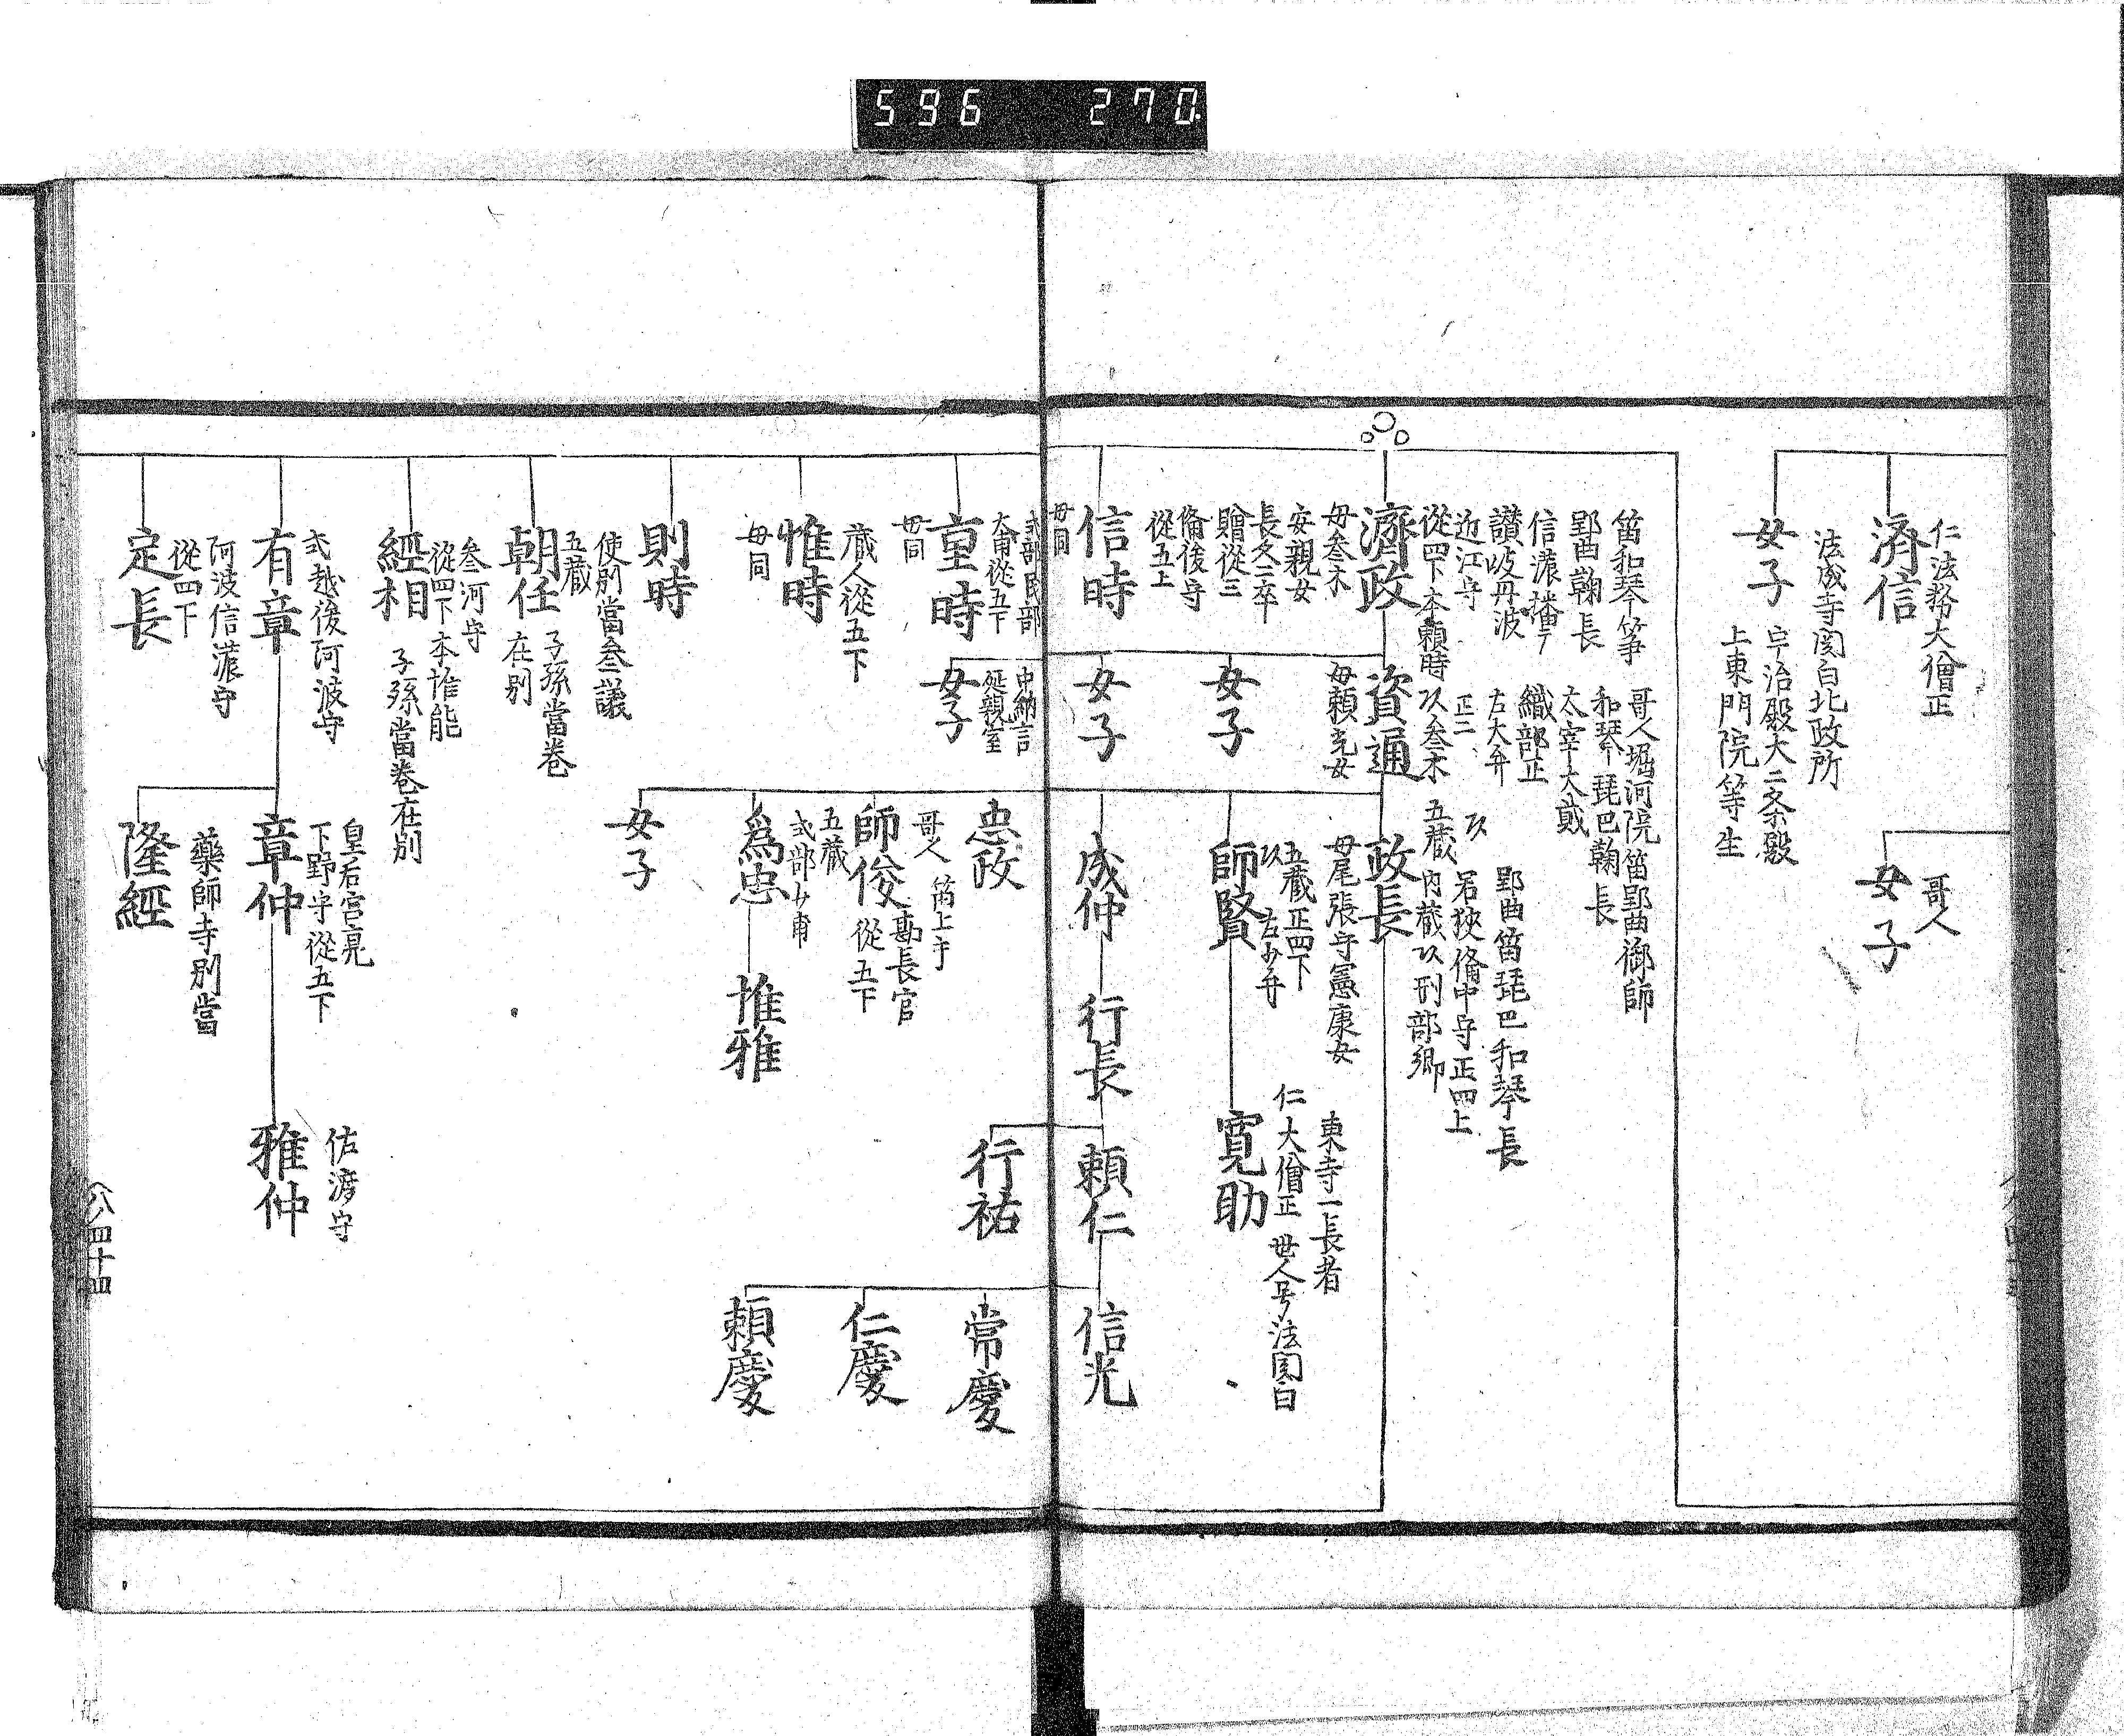 596 270
仁法務大僧正
濟信
哥人
女子
法成寺関白北政所
女子
宇治殿大二条殿
上東門院等生
笛和琴箏
郢曲鞠長
信濃播广
讃岐丹波
近江守
從四下本頼時
濟政
母叁木
安親女
長久二卒
贈從三
備後守
從五上
哥人堀河院笛郢曲御師
和琴琵巴鞠長
太宰大貳
織部正
左大弁
正二
以叁木
資通
母頼光女
郢曲笛琵巴和琴長
若狹備中守正四上
五蔵内蔵以刑部卿
政長
母尾張守憲康女
五蔵正四下
以左少弁
師賢
東寺一長者
仁大僧正世人号法関白
寛助
女子
信時
母同
女子
成仲
行長
頼仁
信光
式部民部
大甫從五下
重時
母同
中納言
延親室
女子
忠政
行祐
常慶
仁慶
頼慶
哥人笛上手
師俊
勘長官
從五下
五蔵
式部少甫
為忠
惟雅
女子
蔵人從五下
惟時
母同
則時
使別當叁議
五蔵
朝任
子孫當巻
在別
叁河守
從四下本惟能
經相
子孫當巻在別
式越後阿波守
有章
皇后宮亮
下野守從五下
章仲
佐渡守
雅仲
藥師寺別當
隆經
阿波信濃守
從四下
定長
八ノ四十四